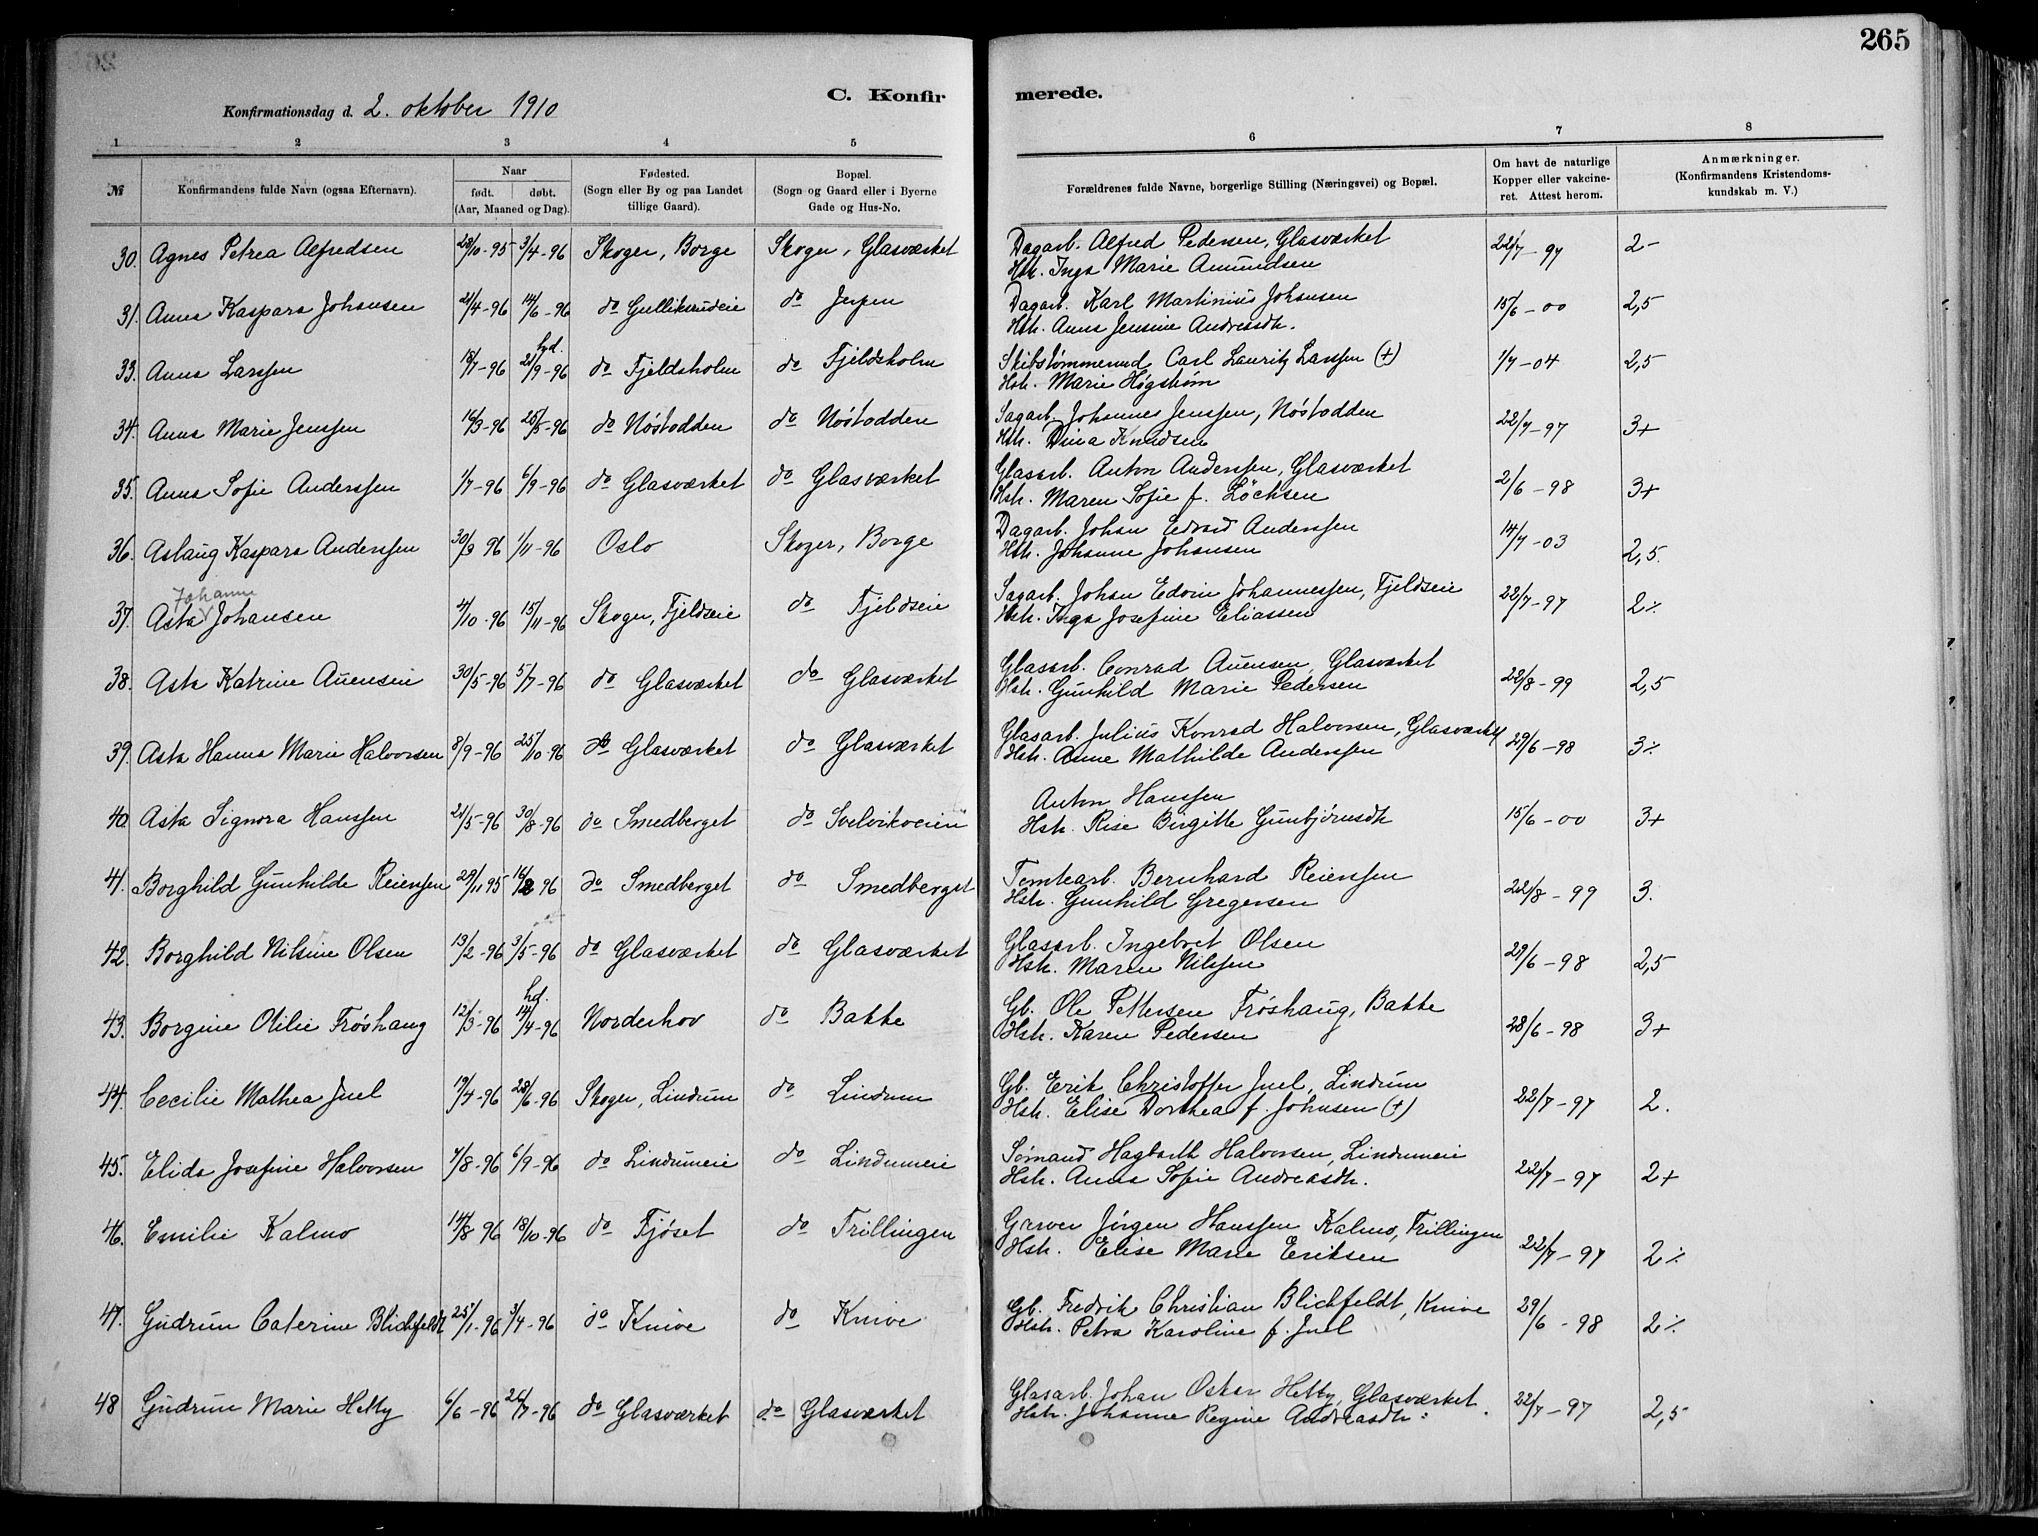 265
C. Konfirmerede.
Konfirmationsdag d. 2. oktober 1910
1 2 3 4 5 6 7 8
№ Konfirmandens fulde Navn (ogsaa Efternavn). Naar født. døbt. (Aar, Maaned og Dag). Fødested. (Sogn eller By og paa Landet tillige Gaard). Bopæl. (Sogn og Gaard eller i Byerne Gade og Hus-No. Forældrenes fulde Navne, borgerlige Stilling (Næringsvei) og Bopæl. Om havt de naturlige Kopper eller vakcineret. Attest herom. Anmærkninger. (Konfirmandens Kristendomskundskab m. V.)
30. Agnes Petrea Alfredsen 28/10-95 3/4-96 Skoger, Borge Skoger, Glasværket Dagarb. Alfred Pedersen, Glasværket 22/7-97 2-
Hstr. Inga Marie Amundsen
31. Anna Kaspara Johansen 21/4-96 14/6-96 do Gulliksrudeie do Jerpen Dagarb. Karl Martinius Johansen 15/6-00 2,5
Hstr. Anna Jensine Andreasdtr.
33. Anna Larssen 18/7-96 hjd. 21/9-96 do Fjeldsholm do Fjeldsholm Skibstømmermd Carl Lauritz Larssen (+) 1/7-04 2,5
Hstr. Marie Høgstrøm
34. Anna Marie Jenssen 16/3-96 25/5-96 do Nøstodden do Nøstodden Sagarb. Johannes Jenssen, Nøstodden 22/7-97 3+
Hstr. Dina Knudsen
35. Anna Sofie Anderssen 1/7-96 6/9-96 do Glasværket do Glasværket Glasarb. Anton Anderssen, Glasværket 2/6-98 3+
Hstr. Maren Sofie f. Löchsen
36. Aslaug Kaspara Anderssen 30/9 96 1/11-96 Oslo Skoger, Borge Dagarb. Johan Edvard Anderssen 14/7-03 2,5.
Hstr. Johanne Johansen
Johanne
37. Asta Johansen 4/10-96 15/11-96 Skoger, Fjeldseie do Fjeldseie Sagarb. Johan Edvin Johannessen, Fjeldseie 22/7-97 2%
Hstr. Inga Josefine Eliassen
38. Asta Katrine Auensen 30/5-96 5/7-96 do Glasværket do Glasværket Glasarb. Conrad Auensen, Glasværket 22/8-99 2,5
Hstr. Gunhild Marie Pedersen
39. Asta Hanna Marie Halvorsen 8/9-96 25/10-96 do Glasværket do Glasværket Glasarb. Julius Konrad Halvorsen, Glasværket 29/6-98 3%
Hstr. Anne Mathilde Anderssen
40. Asta Signora Hanssen 21/5-96 30/8-96 do Smedberget do Svelvikveien Anton Hanssen 15/6-00 3+
Hstr. Rise Birgitte Gunbjørnsdtr
41. Borghild Gunhilde Reierssen 29/11 95 16/2 96 do Smedberget do Smedberget Tomtearb. Bernhard Reierssen 22/8-99 3.
Hstr. Gunhild Gregersen
42. Borghild Nilsine Olsen 13/2-96 3/5-96 do Glasværket do Glasværket Glasarb. Ingebret Olsen 29/6-98 2,5
Hstr. Maren Nilssen
43. Borgine Otilie Frøshaug 12/3-96 hd. 14/4-96 Norderhov do Bakke Gb. Ole Pettersen Frøshaug, Bakke 28/6-98 3+
Hstr. Karen Pedersen
44. Cecilie Mathea Juel 19/4-96 28/6-96 Skoger, Lindrum do Lindrum Gb. Erik Christoffer Juel, Lindrum 22/7-97 2.
Hstr. Elise Dorthea f. Johnsen (+)
45. Elida Josefine Halvorsen 1/8-96 6/9-96 do Lindumeie do Lindumeie Sømand Hagbarth Halvorsen, Lindumeie 22/7-97 2+
Hstr. Anna Sofie Andreasdtr.
46. Emilie Kalmo 14/8 96 18/10-96 do Fjøset do Trillingen Garver Jørgen Hanssen Kalmo, Trillingen 22/7-97 2%
Hstr. Elise Marie Eriksen
47. Gudrun Caterine Blichfeldt 25/1-96 3/4-96 do Knive do Knive Gb. Fredrik Christian Blichfeldt, Knive 29/6-98 2%
Hstr. Petra Karoline f. Juel
48 Gudrun Marie Hetty 6/6-96 26/7-96 do Glasværket do Glasværket Glasarb. Johan Oskar Hetty, Glasværket 22/7-97 2,5
Hstr. Johanne Regine Andreasdtr.